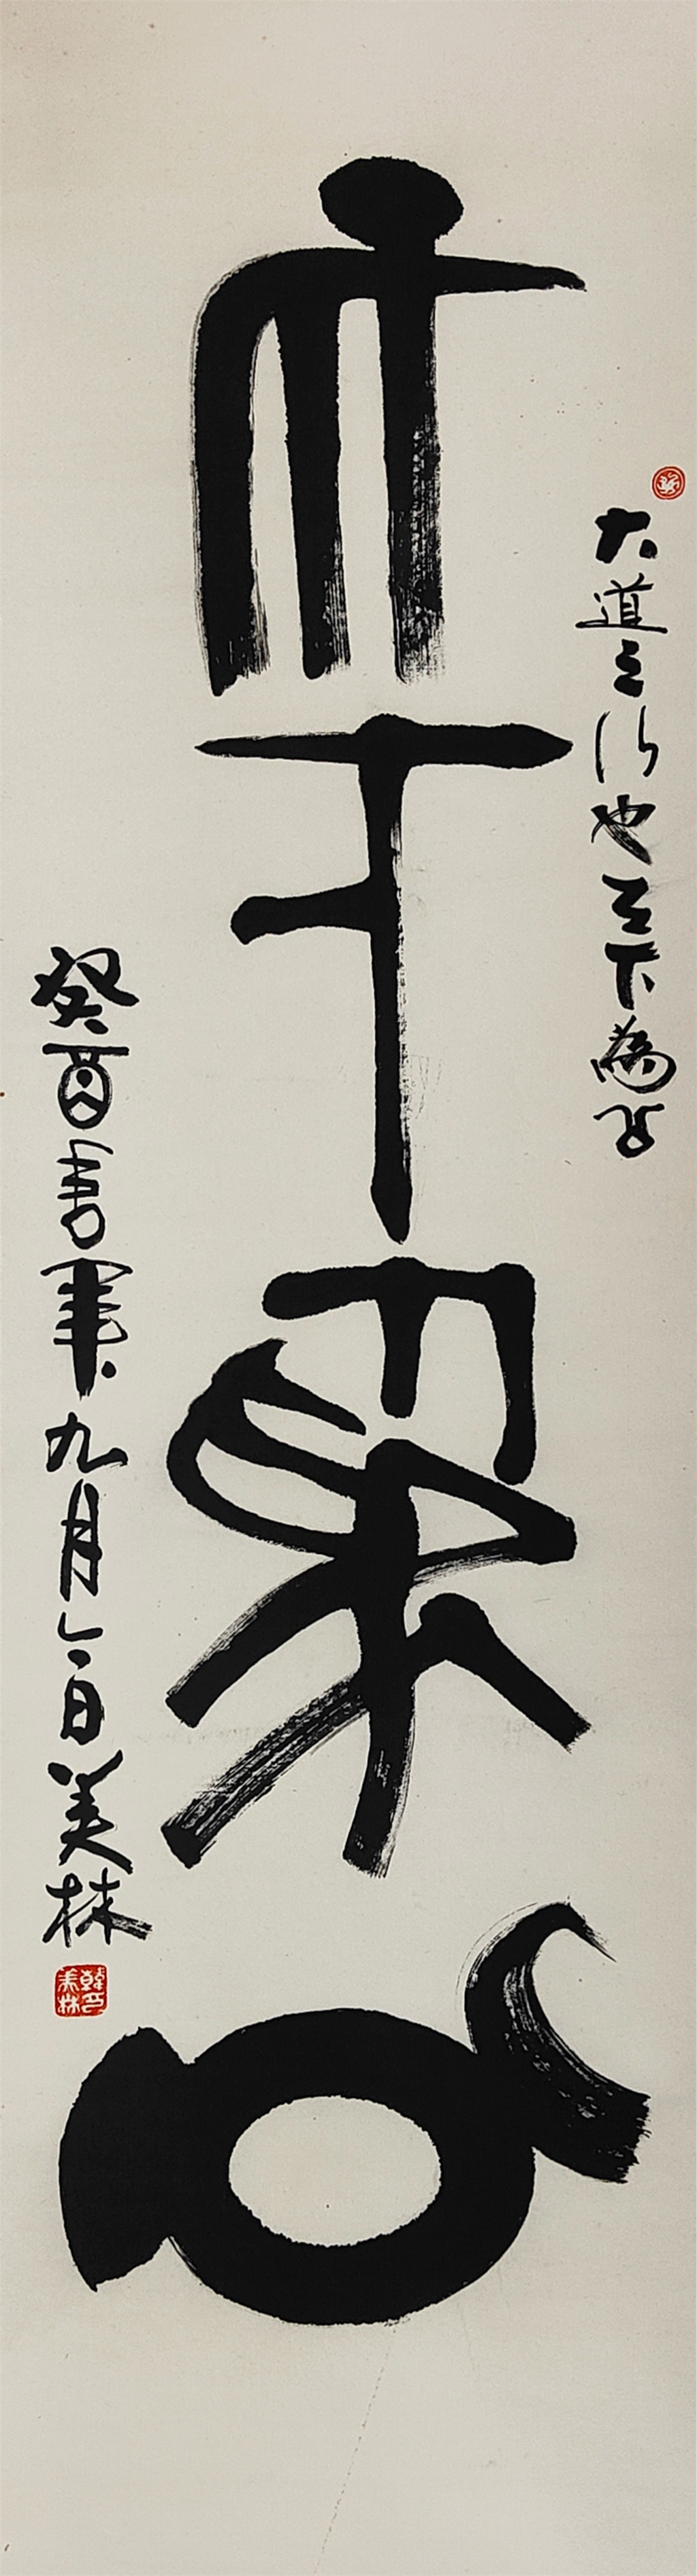 天下為公
大道之行也天下為公
癸酉書軍九月六日美林
韓美林印